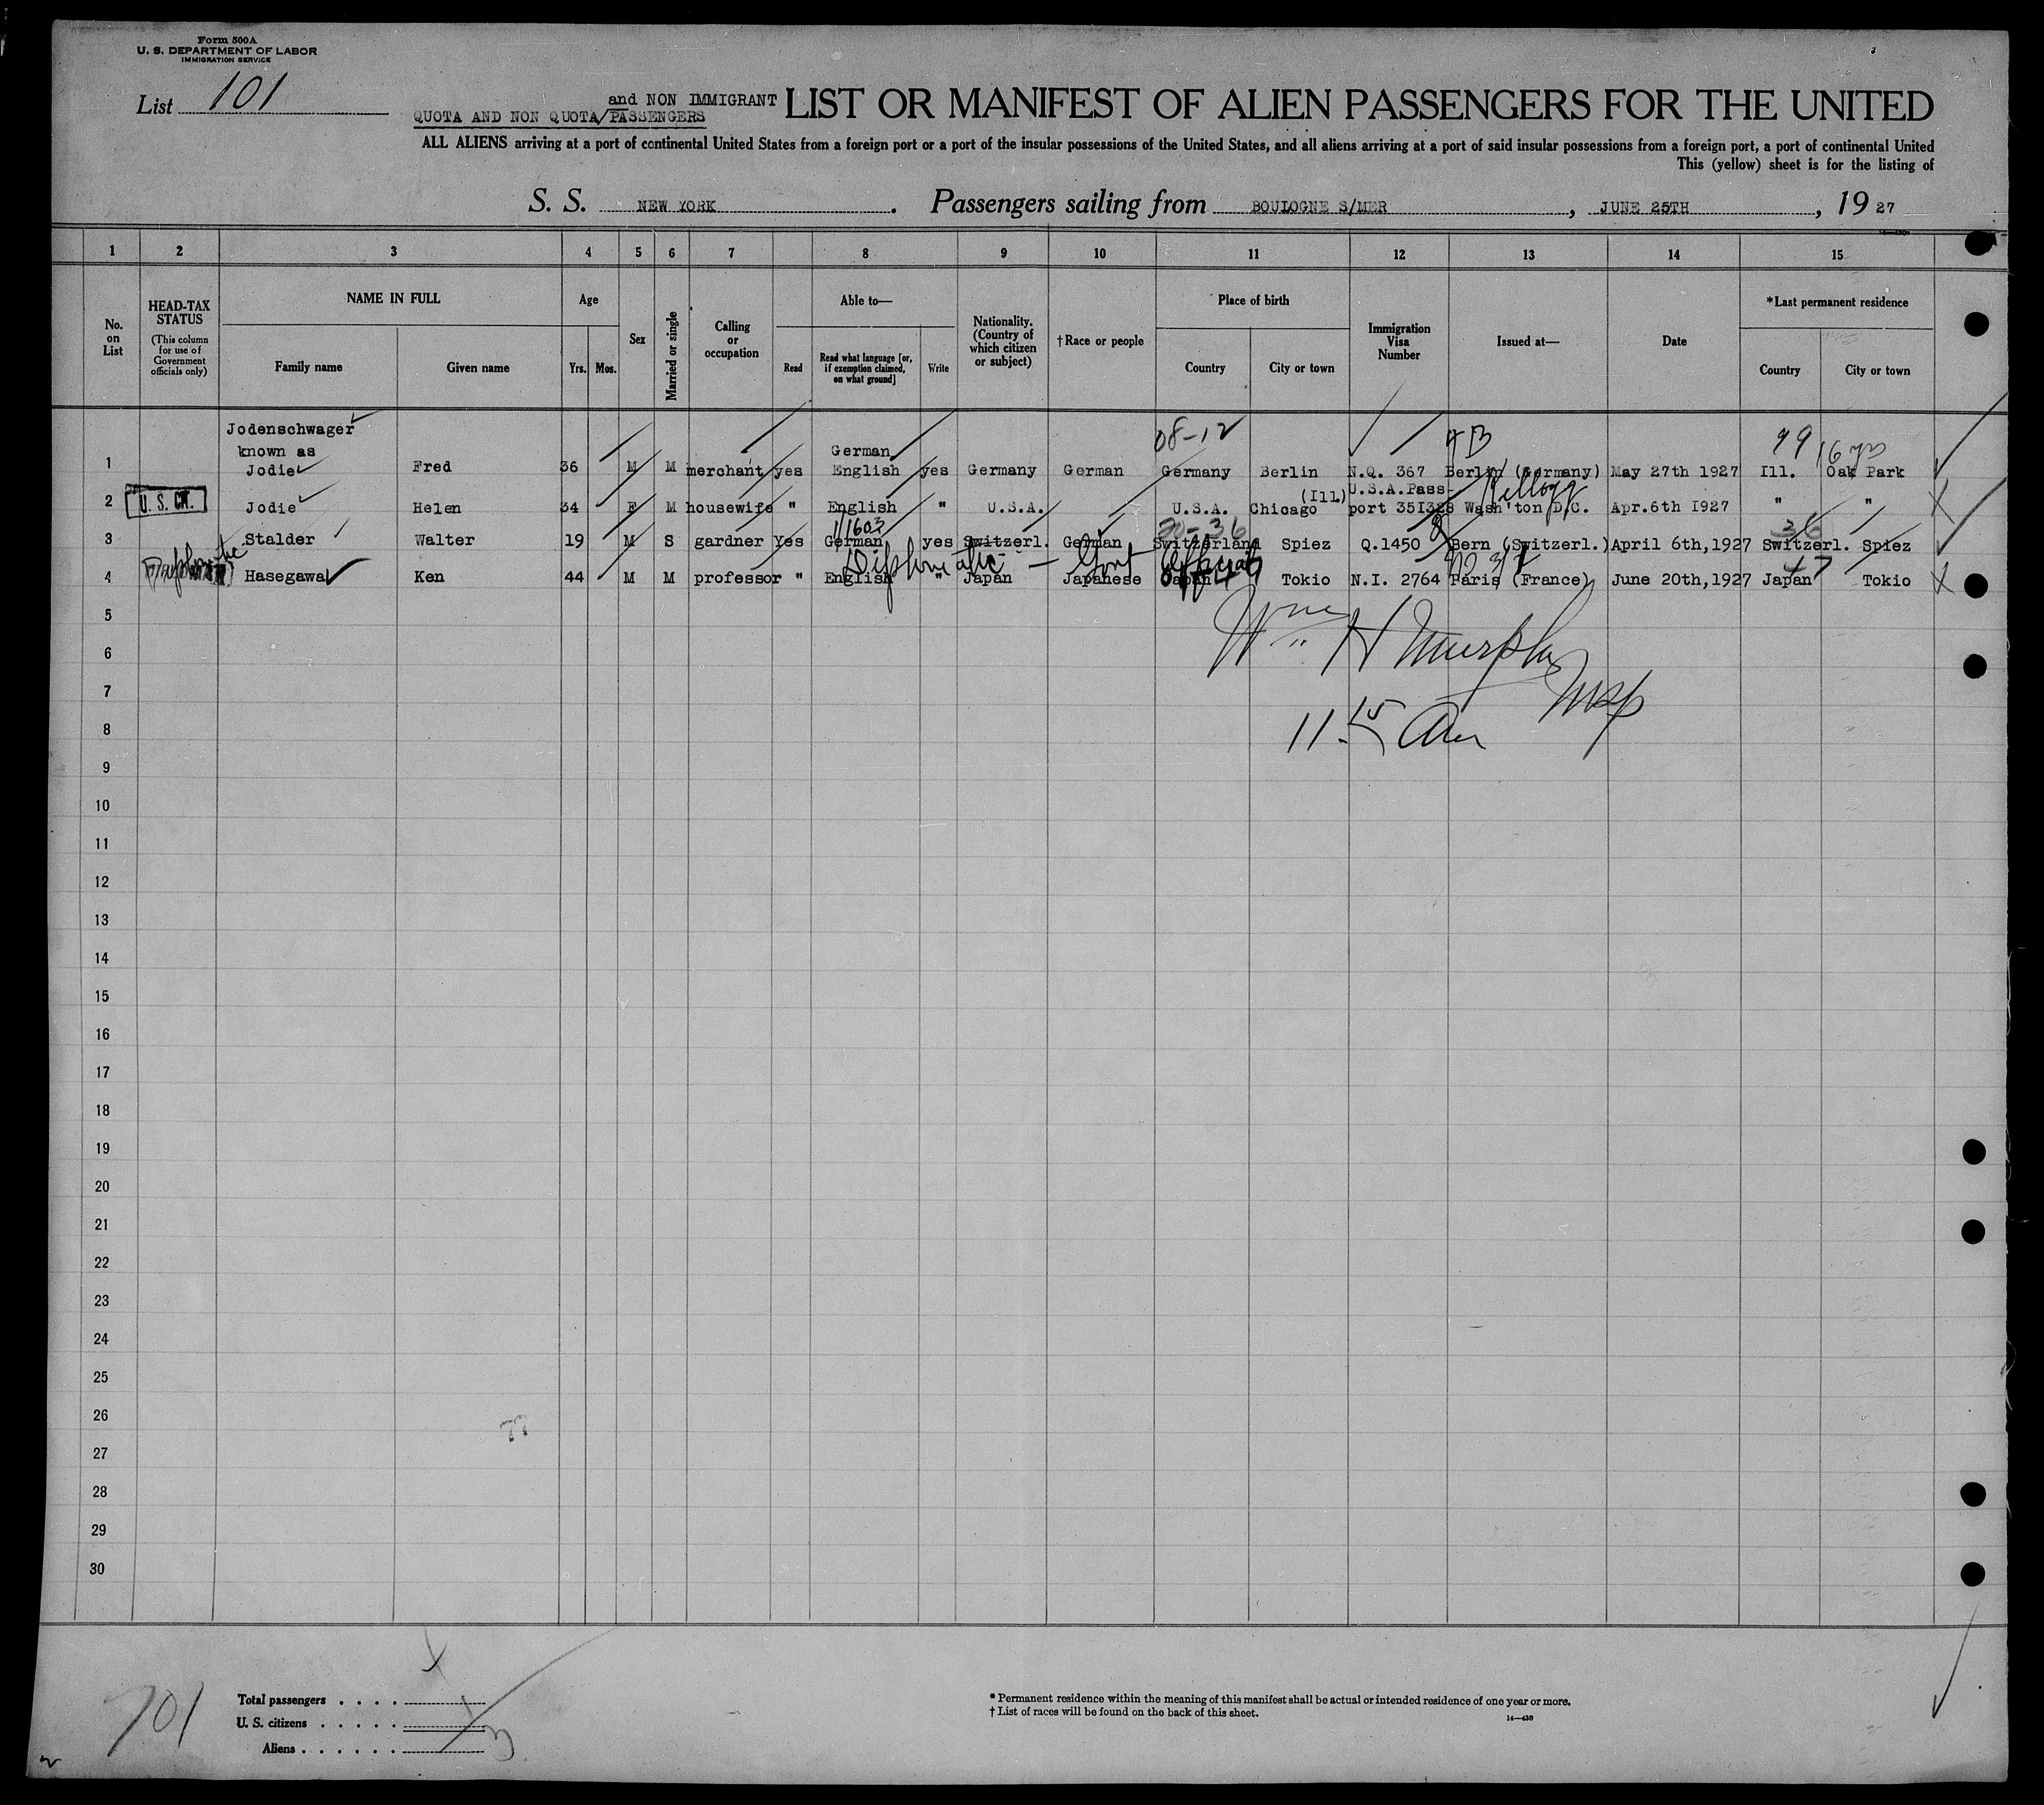 Form 500A
U. S. DEPARTMENT OF LABOR
IMMIGRATION SERVICE
List 101
and NON IMMIGRANT
QUOTA AND NON QUOTA/PASSENGERS
LIST OR MANIFEST OF ALIEN PASSENGERS FOR THE UNITED
ALL ALIENS arriving at a port of continental United States from a foreign port or a port of the insular possessions of the United States, and all aliens arriving at a port of said insular possessions from a foreign port, a port of continental United
This (yellow) sheet is for the listing of
S. S. NEW YORK. Passengers sailing from BOULOGNE S/MER, JUNE 25TH, 1927
1 2 3 4 5 6 7 8 9 10 11 12 13 14 15
No. on List
HEAD-TAX STATUS
(This column for use of Government officials only)
NAME IN FULL
Family name Given name
Age
Yrs. Mos.
Sex
Married or single
Calling or occupation
Able to—
Read
Read what language [or, if exemption claimed, on what ground]
Write
Nationality. (Country of which citizen or subject)
†Race or people
Place of birth
Country City or town
Immigration Visa Number
Issued at—
Date
*Last permanent residence
Country City or town
08-12 4B 99 16 yrs
Jodenschwager
known as German
1 Jodie Fred 36 M M merchant yes English yes Germany German Germany Berlin N.Q. 367 Berlin (Germany) May 27th 1927 Ill. Oak Park
(Ill) U.S.A. Pass- Kellogg
2 U. S. CIT. Jodie Helen 34 F M housewife " English " U.S.A. U.S.A. Chicago port 351328 Wash'ton D.C. Apr.6th 1927 " "
1/1603 20-36 36
3 Stalder Walter 19 M S gardner Yes German yes Switzerl. German Switzerland Spiez Q.1450 Bern (Switzerl.) April 6th,1927 Switzerl. Spiez
Diplomatic Diplomatic — Govt Official 47
4 Hasegawa Ken 44 M M professor " English " Japan Japanese Japan Tokio N.I. 2764 Paris (France) June 20th,1927 Japan Tokio
5
Wm H Murphy
6
7
Insp
8
11.15 am
9
10
11
12
13
14
15
16
17
18
19
20
21
22
23
24
25
26
27
28
29
30
101
Total passengers . . . .
U. S. citizens . . . . .
Aliens . . . . . . 3
* Permanent residence within the meaning of this manifest shall be actual or intended residence of one year or more.
† List of races will be found on the back of this sheet.
14—430